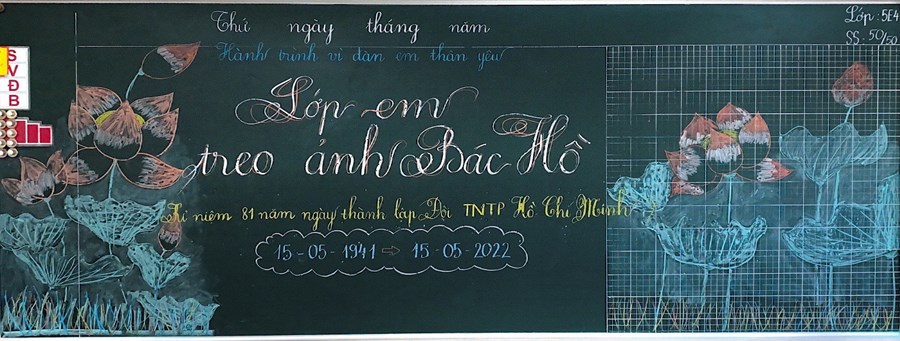 Thứ ngày tháng năm
Lớp: 5E4
SS: 50/50
Hành trình vì đàn em thân yêu
S
V
Đ
B
Lớp em
treo ảnh Bác Hồ
Kỉ niệm 81 năm ngày thành lập Đội TNTP Hồ Chí Minh
15-05-1941 ⇨ 15-05-2022